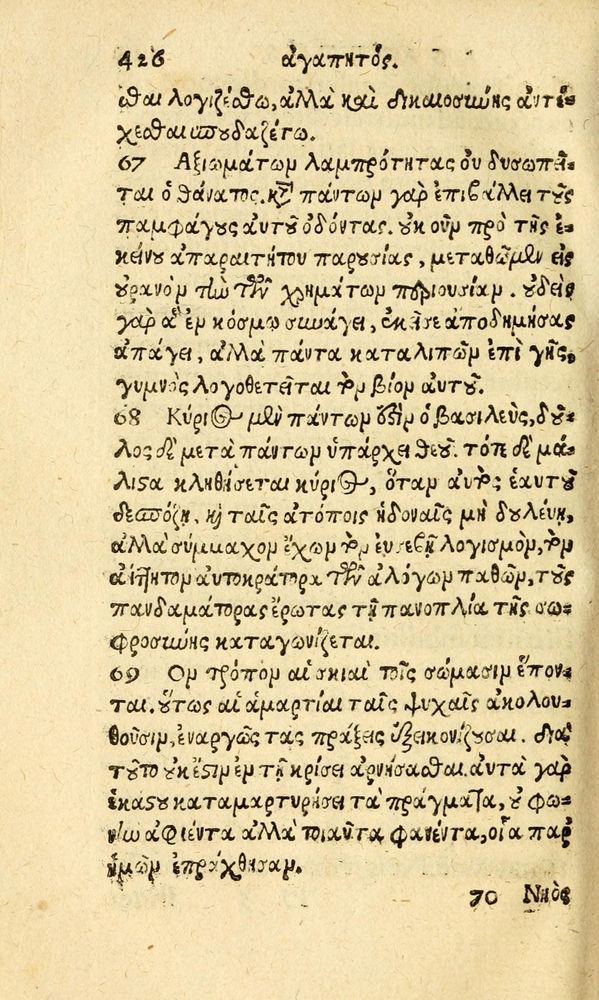 426 ἀγαπητὸς.
σθαι λογιζέσθω, ἀλλὰ καὶ δικαιοσύνης ἀντέ-
χεσθαι σπουδαζέτω.
67 Αξιωμάτων λαμπρότητας οὐ δυσωπεῖ-
ται ὁ θάνατος. κατὰ πάντων γὰρ ἐπιβάλλει τοὺς
παμφάγους αὐτοῦ ὀδόντας. οὐκοῦν πρὸ τῆς ἐ-
κείνου ἀπαραιτήτου παρουσίας, μεταθῶμεν εἰς
οὐρανὸν τὴν τῶν χρημάτων περιουσίαν. οὐδεὶς
γὰρ ἃ ἐν κόσμῳ συνάγει, ἐκεῖσε ἀποδημήσας
ἀπάγει, ἀλλὰ πάντα καταλιπὼν ἐπὶ γῆς,
γυμνὸς λογοθετεῖται τὸν βίον αὐτοῦ.
68 Κύριος μὲν πάντων ἐστὶν ὁ βασιλεὺς, δοῦ-
λος δὲ μετὰ πάντων ὑπάρχει θεοῦ. τότε δὲ μά-
λιστα κληθήσεται κύριος, ὅταν αὐτὸς ἑαυτοῦ
δεσπόζῃ, καὶ ταῖς ἀτόποις ἡδοναῖς μὴ δουλεύῃ,
ἀλλὰ σύμμαχον ἔχων τὸν εὐσεβῆ λογισμὸν, τὸν
ἀήττητον αὐτοκράτορα τῶν ἀλόγων παθῶν, τοὺς
πανδαμάτορας ἔρωτας τῇ πανοπλίᾳ τῆς σω-
φροσύνης καταγωνίζεται.
69 Ον τρόπον αἱ σκιαὶ τοῖς σώμασιν ἕπον-
ται. οὕτως αἱ ἁμαρτίαι ταῖς ψυχαῖς ἀκολου-
θοῦσιν, ἐναργῶς τὰς πράξεις ἐξεικονίζουσαι. διὰ
τοῦτο οὐκ ἔστιν ἐν τῇ κρίσει ἀρνήσασθαι. αὐτὰ γὰρ
ἑκάστου καταμαρτυρήσει τὰ πράγματα, οὐ φω-
νὴν ἀφιέντα ἀλλὰ τοιαῦτα φανέντα, οἷα παρ'
ἡμῶν ἐπράχθησαν.
70 Νηὸς